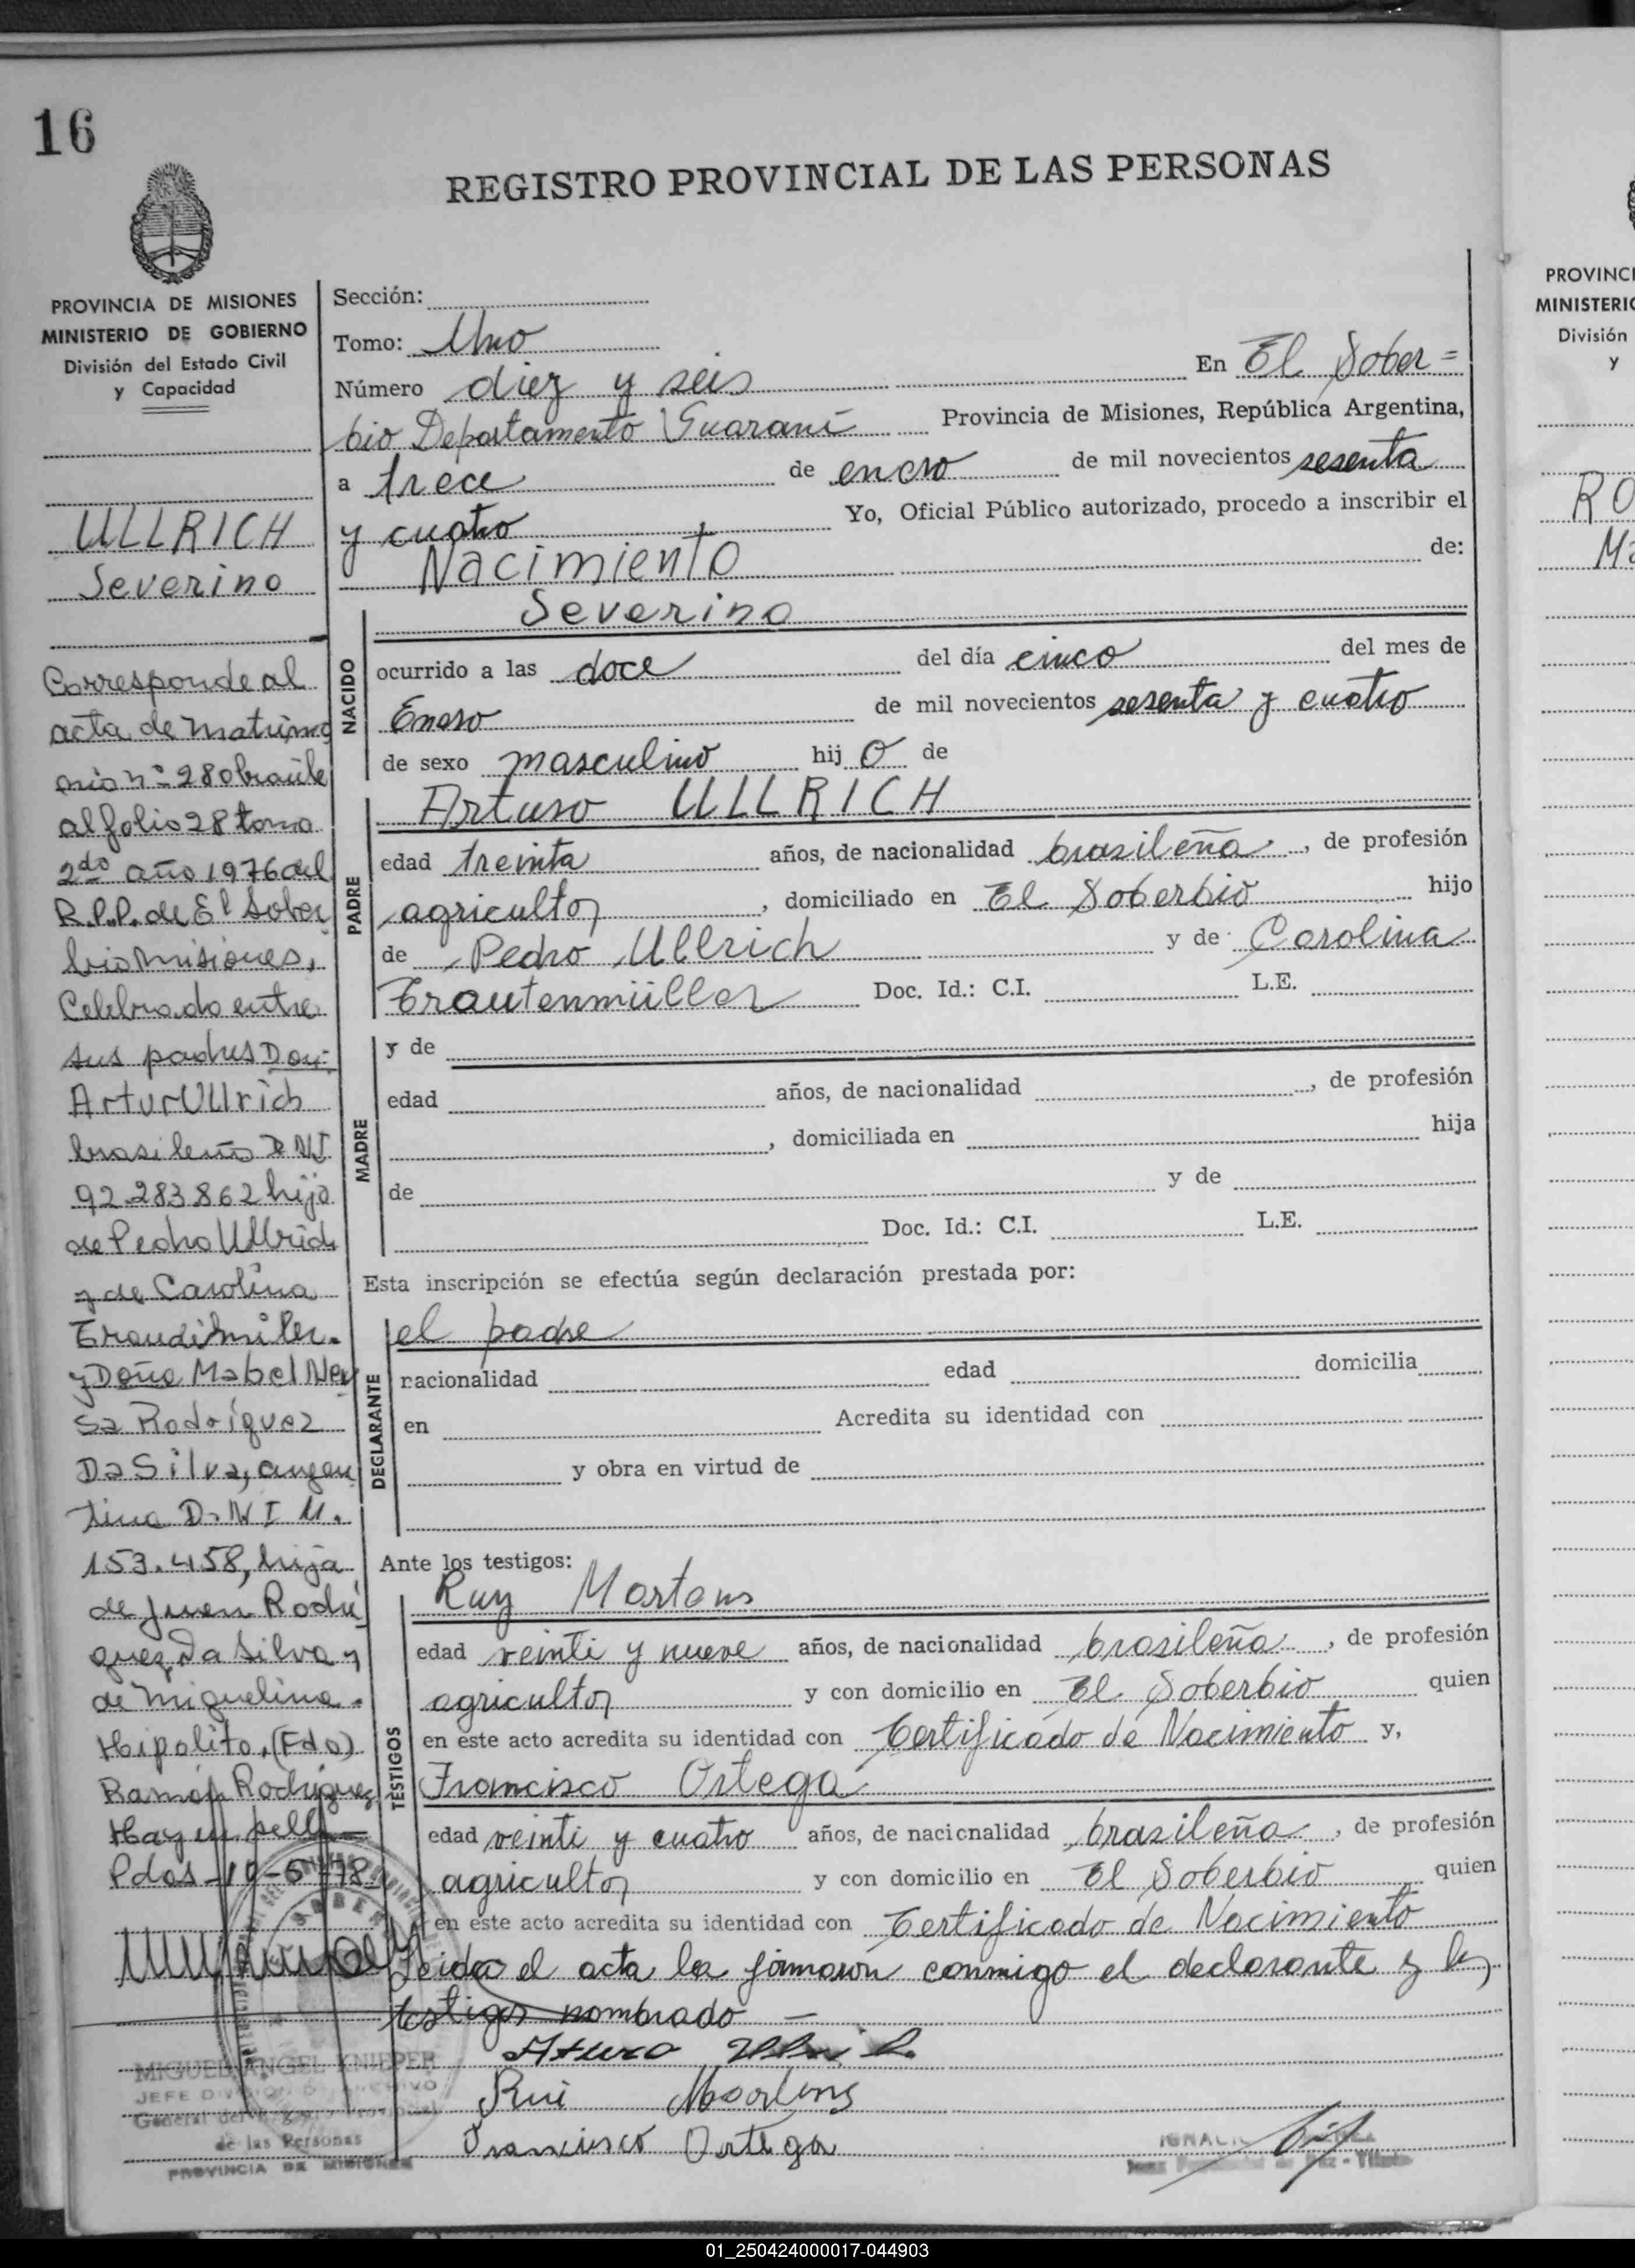 16
REGISTRO PROVINCIAL DE LAS PERSONAS
PROVINCIA DE MISIONES
MINISTERIO DE GOBIERNO
División del Estado Civil
y Capacidad
ULLRICH
Severino
Corresponde al
acta de matrimo
nio nº 28 obrante
al folio 28 tomo
2do año 1976 del
R.P.P. de El Sober
bio Misiones,
Celebrado entre
sus padres Don:
Artur Ullrich
brasileño DNI
92.283.862 hijo
de Pedro Ullrich
y de Carolina
y Doña Mabel Ney
sa Rodríguez
Da Silva, argen
tina D.N.I 11.
153.458, hija
de Juan Rodrí
guez Da Silva y
de Miguelina
Hipolito, (Fdo)
Ramón Rodriguez
Hay un sello
Pdas-19-5-78
MIGUEL ANGEL KNIEPER
JEFE DIVISION ARCHIVO
General del Registro Provincial
de las Personas
PROVINCIA DE MISIONES
Sección:
Tomo: Uno
Número diez y seis En El Sober=
bio Departamento Guaraní Provincia de Misiones, República Argentina,
a trece de enero de mil novecientos sesenta
y cuatro Yo, Oficial Público autorizado, procedo a inscribir el
Nacimiento de:
Severino
NACIDO
ocurrido a las doce del día cinco del mes de
Enero de mil novecientos sesenta y cuatro
de sexo masculino hij o de
Arturo ULLRICH
PADRE
edad treinta años, de nacionalidad brasileña, de profesión
agricultor, domiciliado en El Soberbio hijo
de Pedro Ullrich y de Carolina
Trautenmüller Doc. Id.: C.I. L.E.
MADRE
y de
edad años, de nacionalidad , de profesión
, domiciliada en hija
de y de
Doc. Id.: C.I. L.E.
Esta inscripción se efectúa según declaración prestada por:
DECLARANTE
el padre
nacionalidad edad domicilia
en Acredita su identidad con
y obra en virtud de
Ante los testigos:
TESTIGOS
Ruy Martens
edad veinti y nueve años, de nacionalidad brasileña, de profesión
agricultor y con domicilio en El Soberbio quien
en este acto acredita su identidad con Certificado de Nacimiento y,
Francisco Ortega
edad veinti y cuatro años, de nacionalidad brasileña, de profesión
agricultor y con domicilio en El Soberbio quien
en este acto acredita su identidad con Certificado de Nacimiento
Leida el acta la firmaron conmigo el declarante y los
testigos nombrado —
Arturo Ullrich
Rui Martens
Francisco Ortega
PROVINCI
MINISTERIO
División
y
RO
Ma
01_250424000017-044903